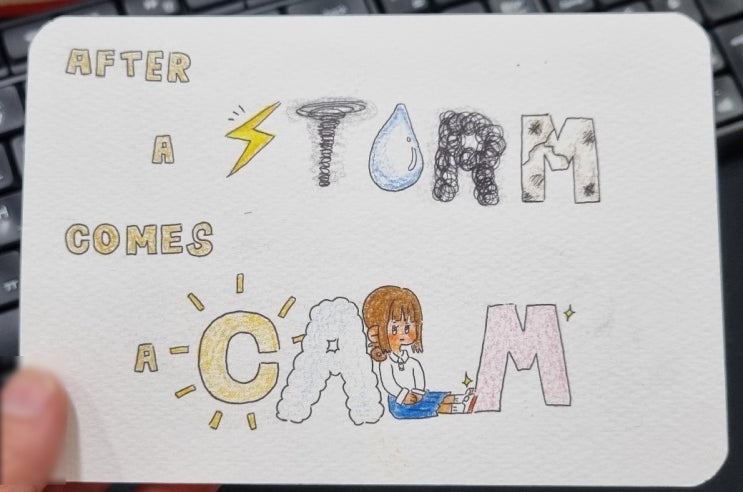 AFTER
A STORM
COMES
A CALM